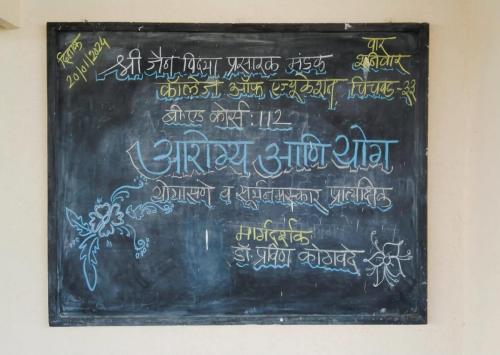 दिनांक
20/01/2024
वार
शनिवार
श्री जैन विद्या प्रसारक मंडळ
कॉलेज ऑफ एज्युकेशन, चिंचवड-३३
बी.एड कोर्स : 112
आरोग्य आणि योग
योगासने व सूर्यनमस्कार प्रात्यक्षिक
मार्गदर्शक
डॉ. प्रविण कोठावदे